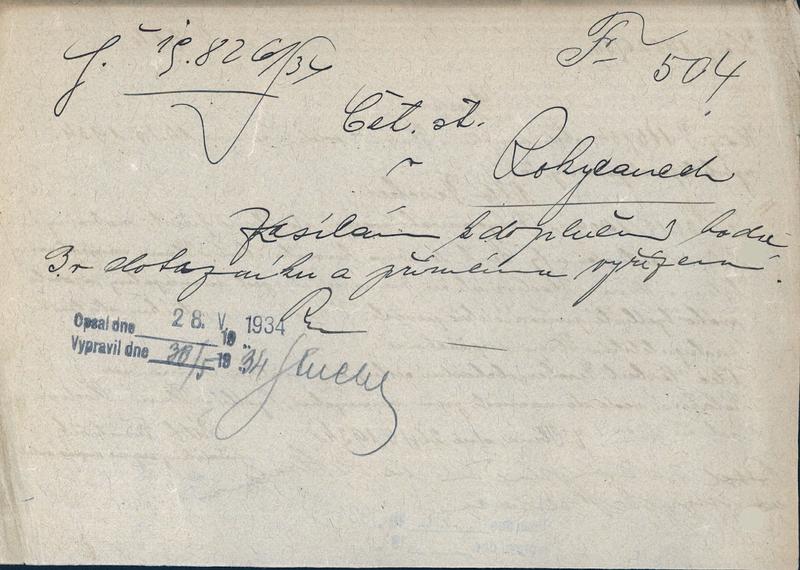 Č. 19.826/34
Fr 504
Čet. st.
v Rokycanech
Zasílám k doplnění bodu
3. v dotazníku a přímému vyřízení.
Opsal dne 28. V. 1934
Vypravil dne 30/5 1934